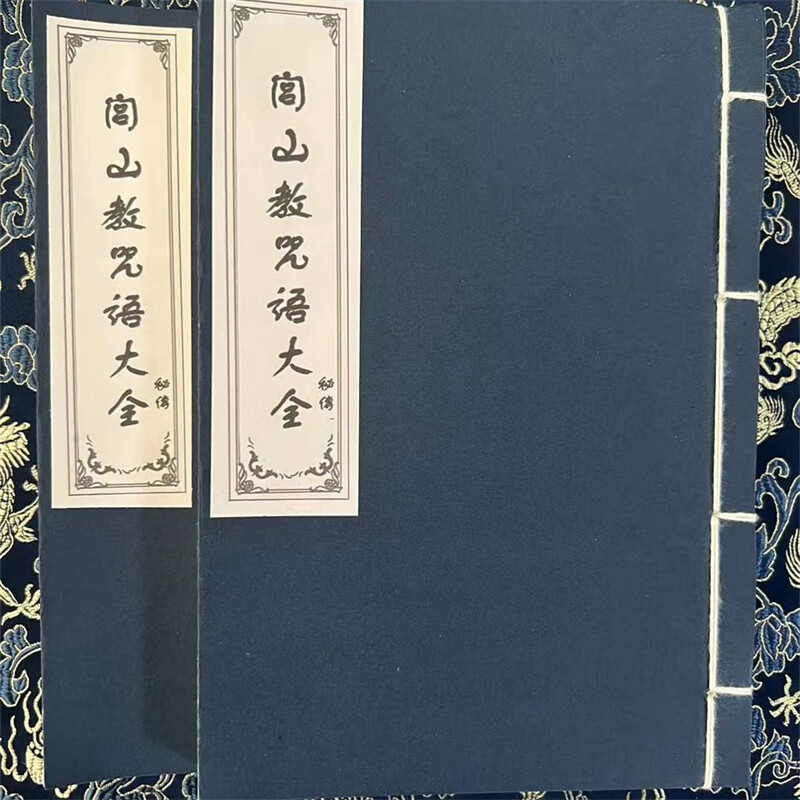 閭山教咒语大全
秘傳
閭山教咒语大全
秘傳